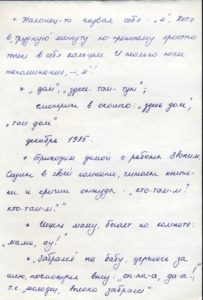 * Наконец-то назвал себя: "я". Хотя
в "трудную" минуту по-прежнему просто
тычет в себя пальцем. И только после
напоминания, – "я"!
* "дом", "здесь-там-тут";
смотрит в окошко: "здесь дом,
"там дом"
декабрь 1985.
* Приходим домой с работы
Сидит в своей комнате, читает книж-
ки и кричит оттуда: "кто-там-м?
кто-там-м?"
* Ищет маму, бегает по комнате:
"мама, ау!"
* Забрался на бабу, держась за
шею, посмотрел вниз: "са-па-а, да-а!",
т.е. молодец, высоко забрался"